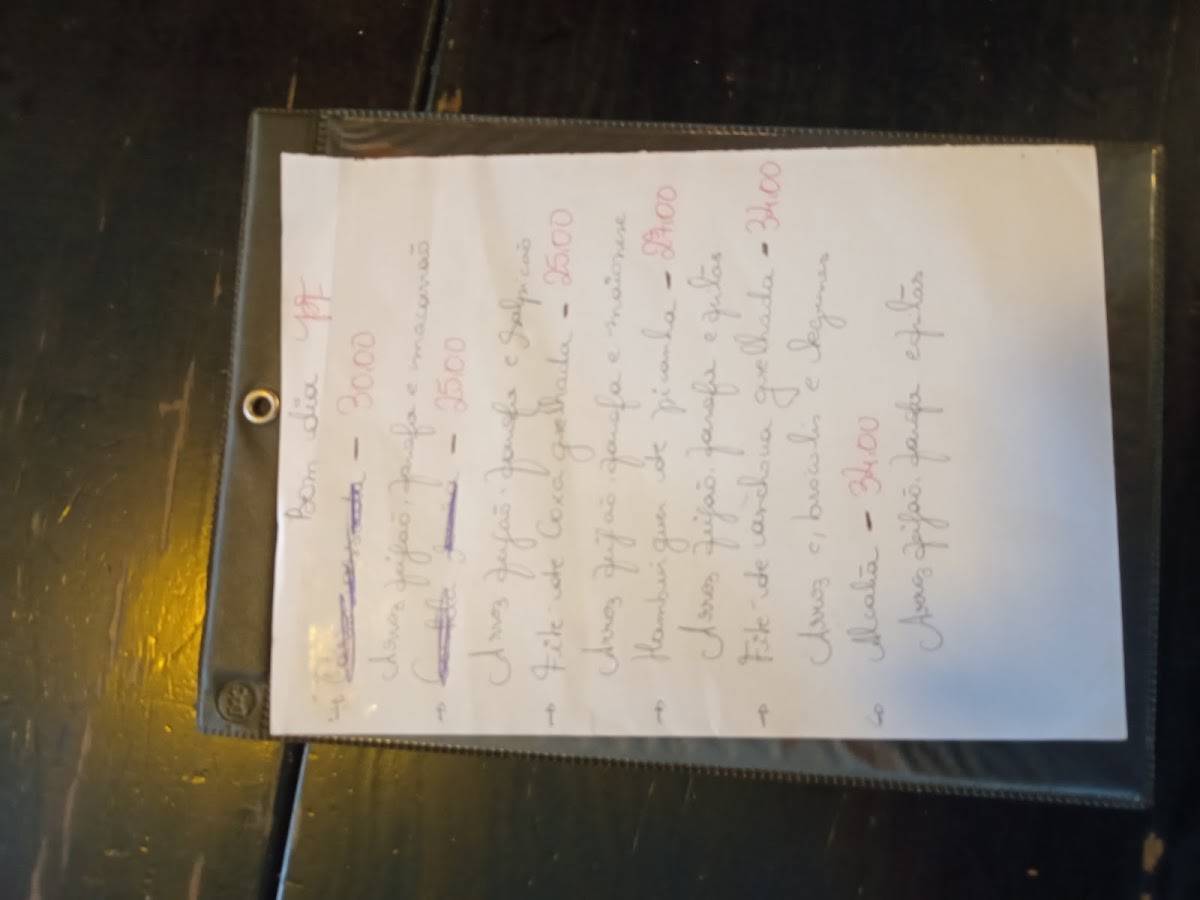 Bom dia PF
→ Carne - 30.00
Arroz feijão, farofa e macarrão
→ - 25.00
Arroz feijão. farofa e Salpicão
→ Filé de Coxa grelhada - 25.00
Arroz feijão, farofa e maionese
→ Hamburguer de picanha - 27.00
Arroz feijão. farofa e fritas
→ Filé de anchova grelhada - 34.00
Arroz c, brocolis e legumes
→ - 34.00
Arroz feijão. farofa e fritas